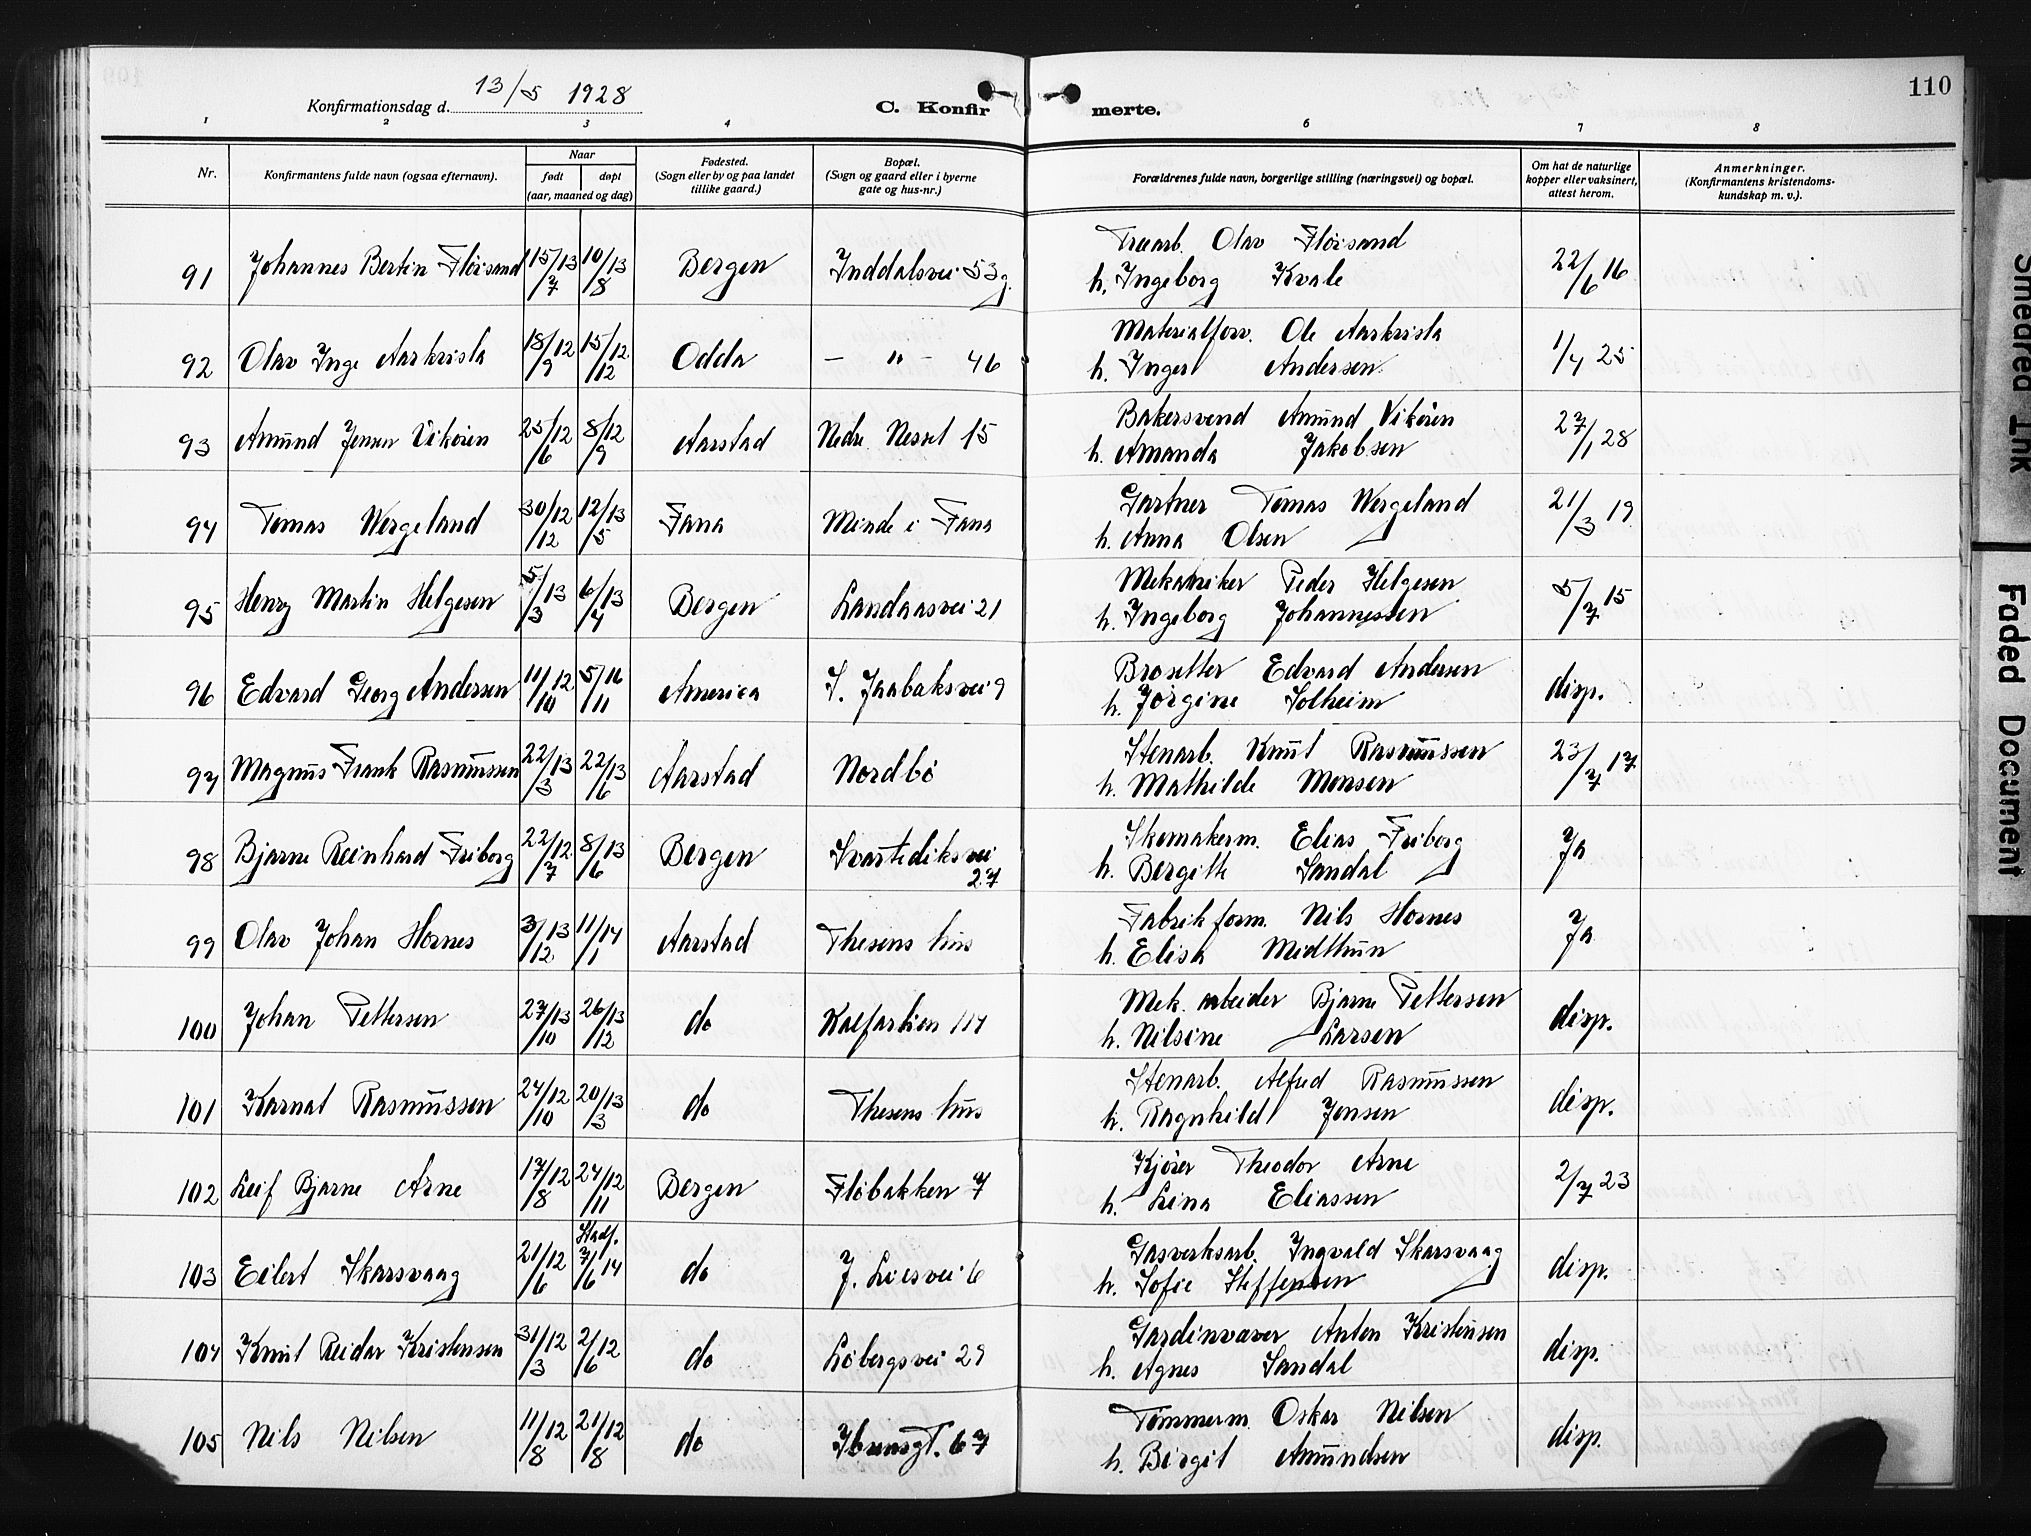 110
Konfirmationsdag d. 13/5 1928
C. Konfirmerte.
1 2 3 4 6 7 8
Nr.
Konfirmantens fulde navn (ogsaa efternavn).
Naar
født døpt
(aar, maaned og dag)
Fødested.
(Sogn eller by og paa landet
tillike gaard.)
Bopæl.
(Sogn og gaard eller i byerne
gate og hus-nr.)
Forældrenes fulde navn, borgerlige stilling (næringsvei) og bopæl.
Om hat de naturlige
kopper eller vaksinert,
attest herom.
Anmerkninger.
(Konfirmantens kristendoms-
kundskap m. v.).
91 Johannes Bertin Fløisand 15/7 13 10/8 13 Bergen Inddalsvei 53g. Træarb. Olav Fløisand
h. Ingeborg Kvale 22/6 16
92 Olav Inge Aarkrisla 18/9 12 15/12 12 Odda – " – 46 Materialforv. Ole Aarkrisla
h. Inger Andersen 1/4 25
93 Amund Jensen Vikören 25/6 12 8/9 12 Aarstad Nedre Nesset 15 Bakersvend Amund Vikören
h. Amanda Jakobsen 27/1 28
94 Tomas Wergeland 30/12 12 12/5 13 Fana Minde i Fana Gartner Tomas Wergeland
h. Anna Olsen 21/3 19
95 Henry Martin Helgesen 5/3 13 6/4 13 Bergen Landaasvei 21 Mekaniker Peder Helgesen
h. Ingeborg Johannessen 5/7 15
96 Edvard Georg Andersen 11/10 12 5/11 16 America J. Jaabaksvei 9 Brosetter Edvard Andersen
h. Jørgine Solheim disp.
97 Magnus Frank Rasmussen 22/3 13 22/6 13 Aarstad Nordbö Stenarb. Knut Rasmussen
h. Mathilde Monsen 23/7 17
98 Bjarne Reinhard Friborg 22/7 12 8/6 13 Bergen Svartediksvei
27 Skomakerm. Elias Friborg
h. Bergitte Sandal Ja
99 Olav Johan Hornes 3/12 13 11/1 14 Aarstad Thesens hus Fabrikform. Nils Hornes
h. Elisa Midthun Ja
100 Johan Pettersen 27/10 13 26/12 13 do Kalfarlien 114 Mek. arbeider Bjarne Pettersen
h. Nilsine Larsen disp.
101 Karnat Rasmussen 24/10 12 20/3 13 do Thesens hus Stenarb. Alfred Rasmussen
h. Ragnhild Jensen disp.
102 Leif Bjarne Arne 17/8 12 24/11 12 Bergen Flöbakken 7 Kjörer Theodor Arne
h. Lina Eliassen 2/7 23
103 Eilert Skarsvaag 21/6 12 Stadf. 7/6 14 do J. Liesvei 6 Gasverksarb. Ingvald Skarsvaag
h. Sofie Steffensen disp.
104 Knut Reidar Kristensen 31/3 12 2/6 12 do Löbergsvei 29 Gardinvæver Anton Kristensen
h. Agnes Sandal disp.
105 Nils Nilsen 11/8 12 21/8 12 do Ibsensgt. 67 Tömmerm. Oskar Nilsen
h. Birgit Amundsen disp.
Smeared Ink
Faded Document